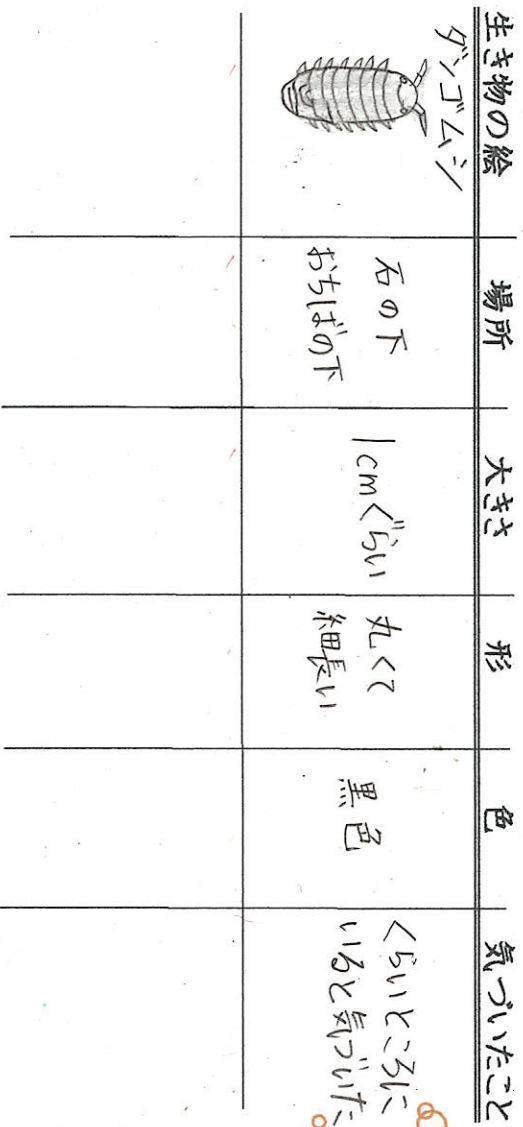 生き物の絵
場所
大きさ
形
色
気づいたこと
ダンゴムシ
石の下
おちばの下
1cmぐらい
丸くて
細長い
黒色
くらいところに
いると気づいた